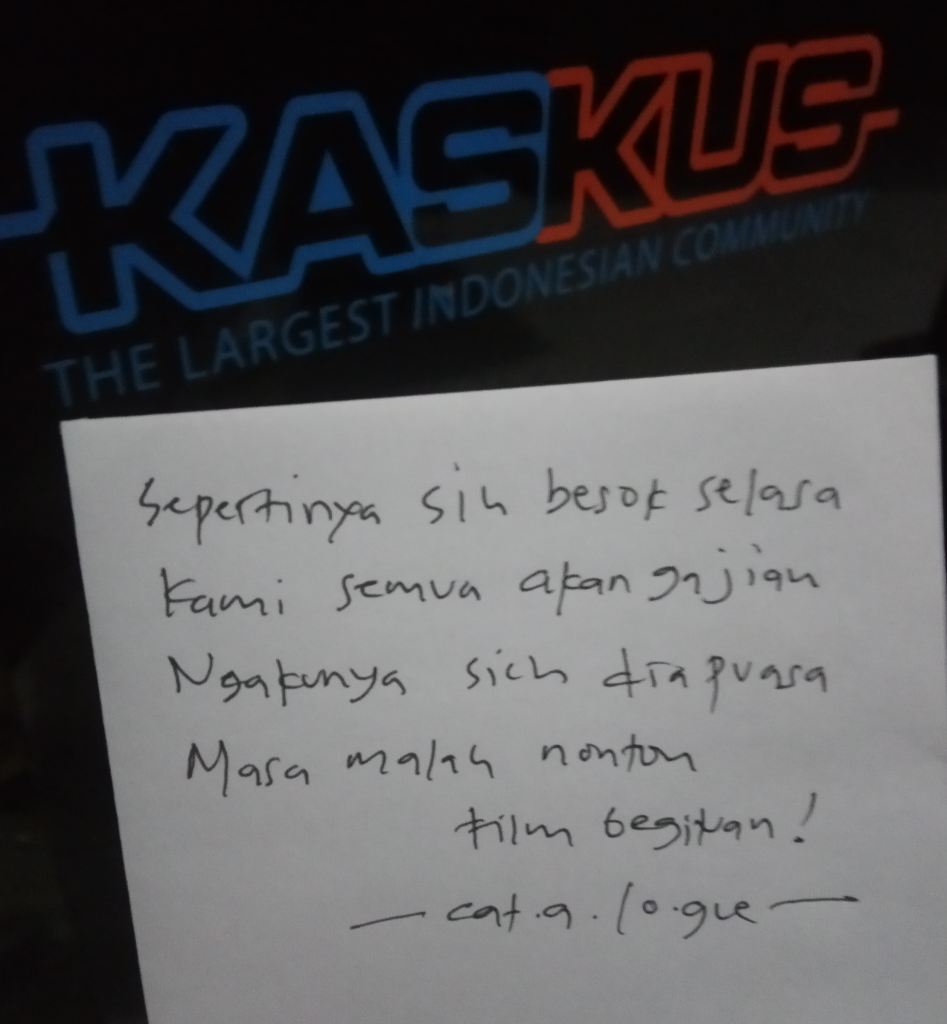 KASKUS
THE LARGEST INDONESIAN COMMUNITY
Sepertinya sih besok selasa
Kami semua akan gajian
Ngakunya sich dia puasa
Masa malah nonton
film begituan!
— cat.a.lo.gue —